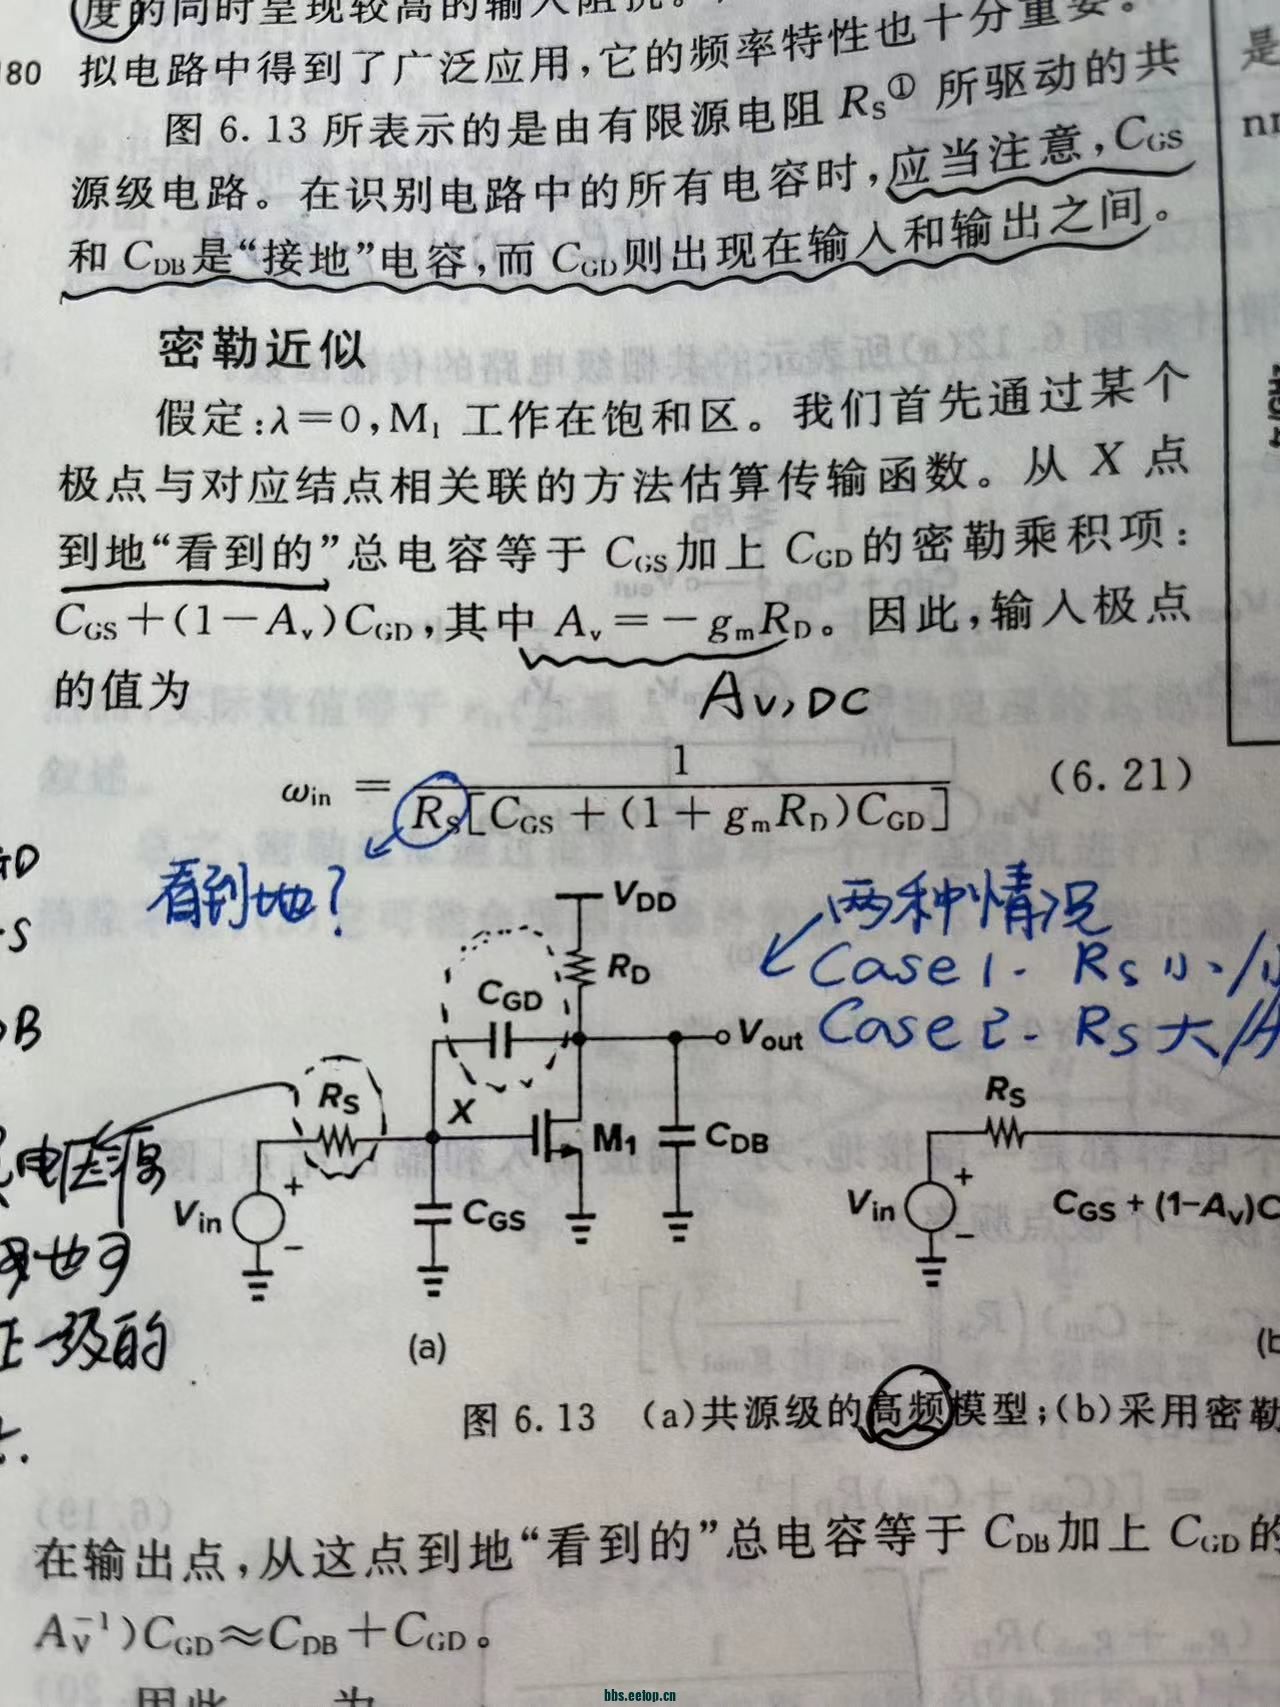 度的同时呈现较高的输入阻抗。
180 拟电路中得到了广泛应用,它的频率特性也十分重要。
图 6.13 所表示的是由有限源电阻 R_S① 所驱动的共
源级电路。在识别电路中的所有电容时,应当注意,C_GS
和 C_DB是“接地”电容,而 C_GD则出现在输入和输出之间。
密勒近似
假定:λ=0,M₁ 工作在饱和区。我们首先通过某个
极点与对应结点相关联的方法估算传输函数。从 X 点
到地“看到的”总电容等于 C_GS加上 C_GD的密勒乘积项:
C_GS+(1-A_v)C_GD,其中 A_v=-g_mR_D。因此,输入极点
的值为
A_v,DC
ω_in = 1 / R_S[C_GS + (1 + g_mR_D)C_GD] (6.21)
看到地?
两种情况
Case 1. R_S 小/
Case 2. R_S 大/
V_DD
R_D
C_GD
V_out
R_S
X
M₁
C_DB
V_in
+
−
C_GS
(a)
R_S
V_in
+
−
C_GS + (1−A_v)C
图 6.13 (a)共源级的高频模型;(b)采用密勒
在输出点,从这点到地“看到的”总电容等于 C_DB加上 C_GD的
A_v⁻¹)C_GD≈C_DB+C_GD。
因此
为
bbs.eetop.cn